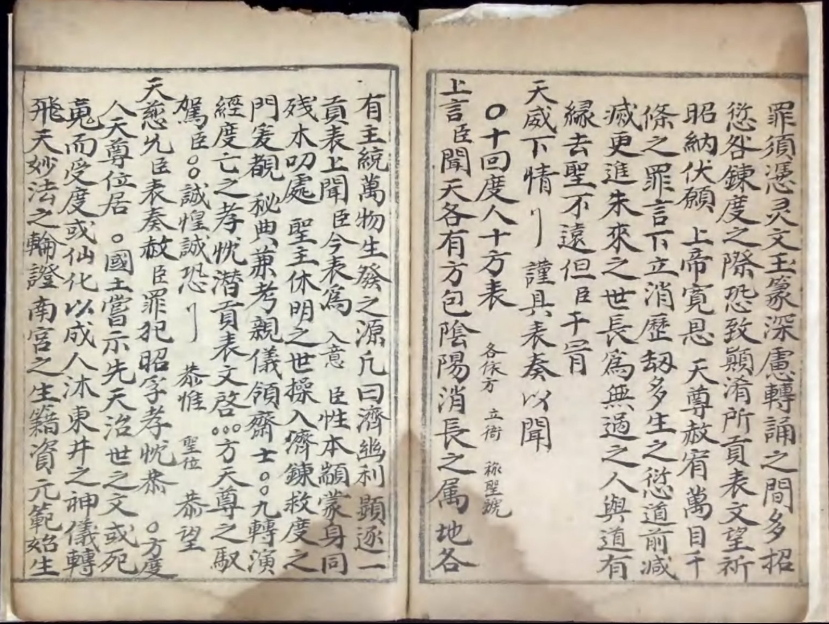 罪須憑灵文玉篆深慮轉誦之間多招
愆咎鍊度之際恐致顛淆所貢表文望祈
昭納伏願　上帝寛恩　天尊赦宥萬目千
條之罪言下立消歷刼多生之愆道前减
滅更進未來之世長為無過之人與道有
縁去聖不遠但臣干冐
天威下情〢謹具表奏以聞
〇十回度人十方表　各依方　立衔　称聖號
上言臣聞天各有方包陰陽消長之属地各
有主統萬物生發之源凢曰濟幽利顕逐一
貢表上聞臣今表為　入意　臣性本顓蒙身同
残木叨處　聖主休明之世操入濟鍊救度之
門爰覩　秘典兼考親儀領齋士〇〇九轉演
經度亡之孝忱潜貢表文啓〇〇〇方天尊之馭
駕臣〇〇誠惶誠恐〢　恭惟　聖位　恭望
天慈允臣表奏赦臣罪犯昭孚孝忱恭　〇方度
人天尊位居　〇國土嘗示先天治世之文或死
䰟而受度或仙化以成人沐東井之神儀轉
飛天妙法之輪證南宮之生籍資元範始生